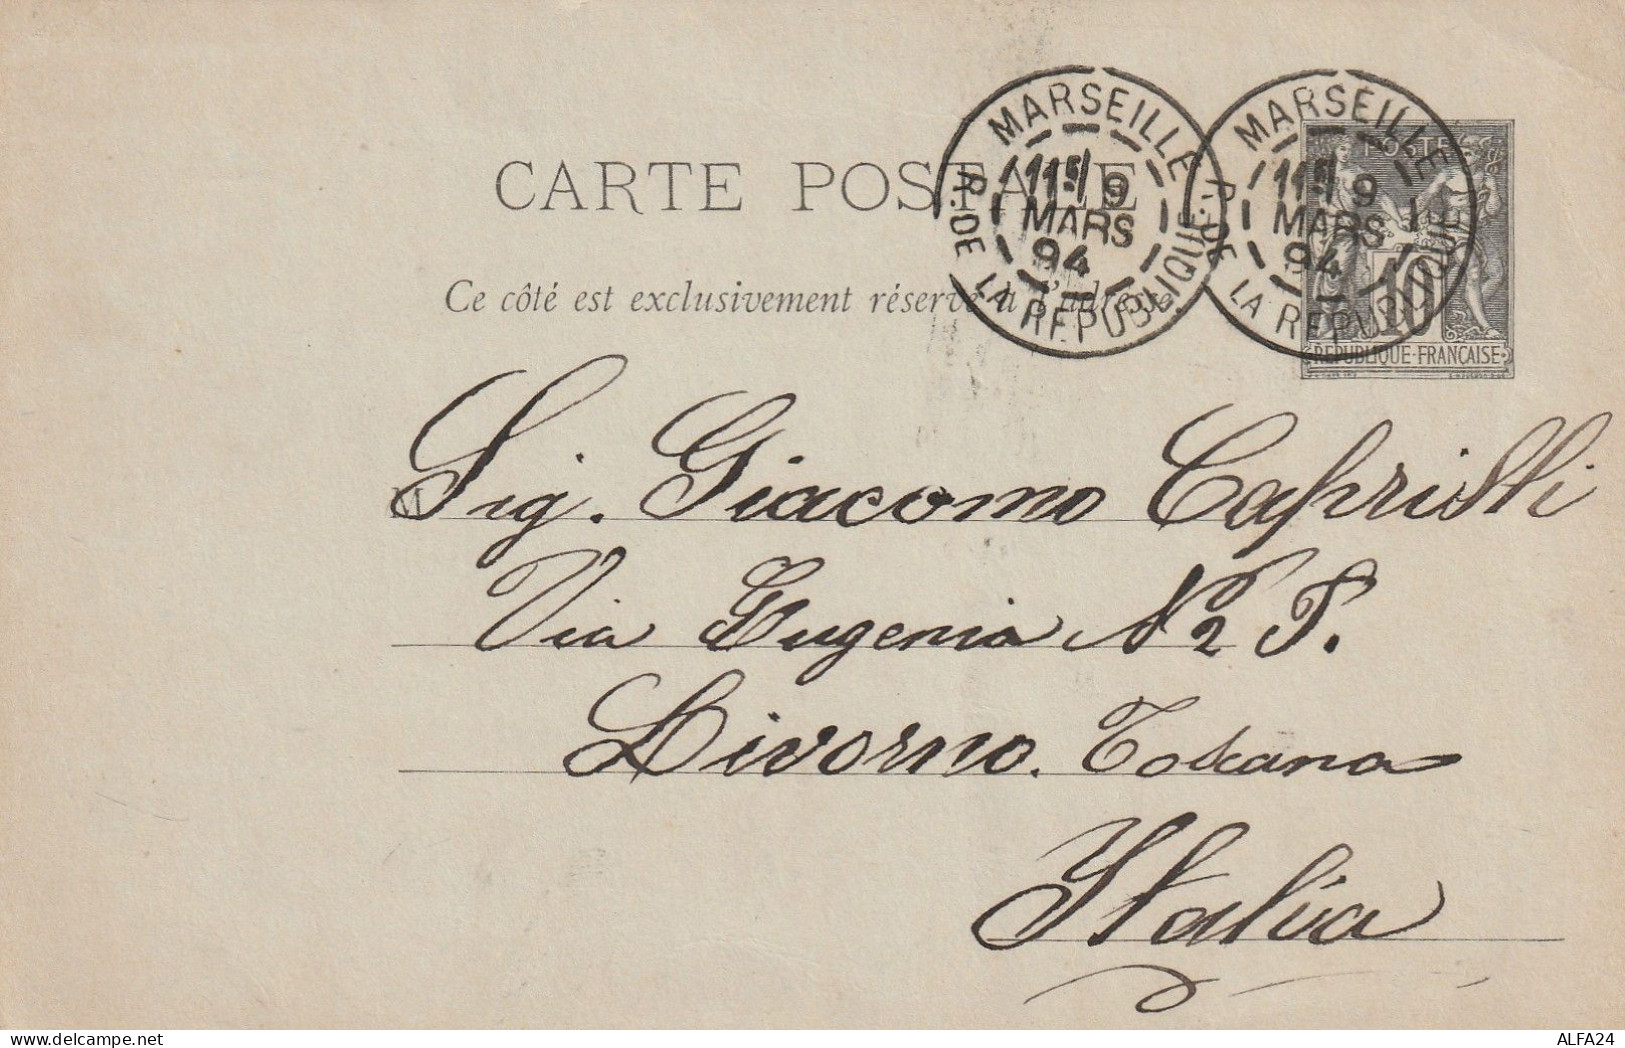 CARTE POSTALE
Ce côté est exclusivement réservé à l'adresse.
MARSEILLE
11 9
MARS
94
R. DE LA REPUBLIQUE
MARSEILLE
11 9
MARS
94
R. DE LA REPUBLIQUE
POSTE
10
REPUBLIQUE FRANÇAISE
M
Sig. Giacomo
Via Eugenia N 2
Livorno. Toscana
Italia
ALFA24